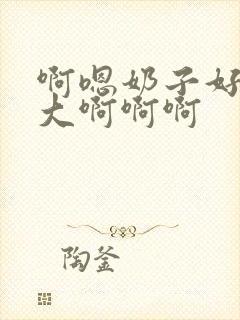 啊嗯奶子好
大啊啊啊
陶釜